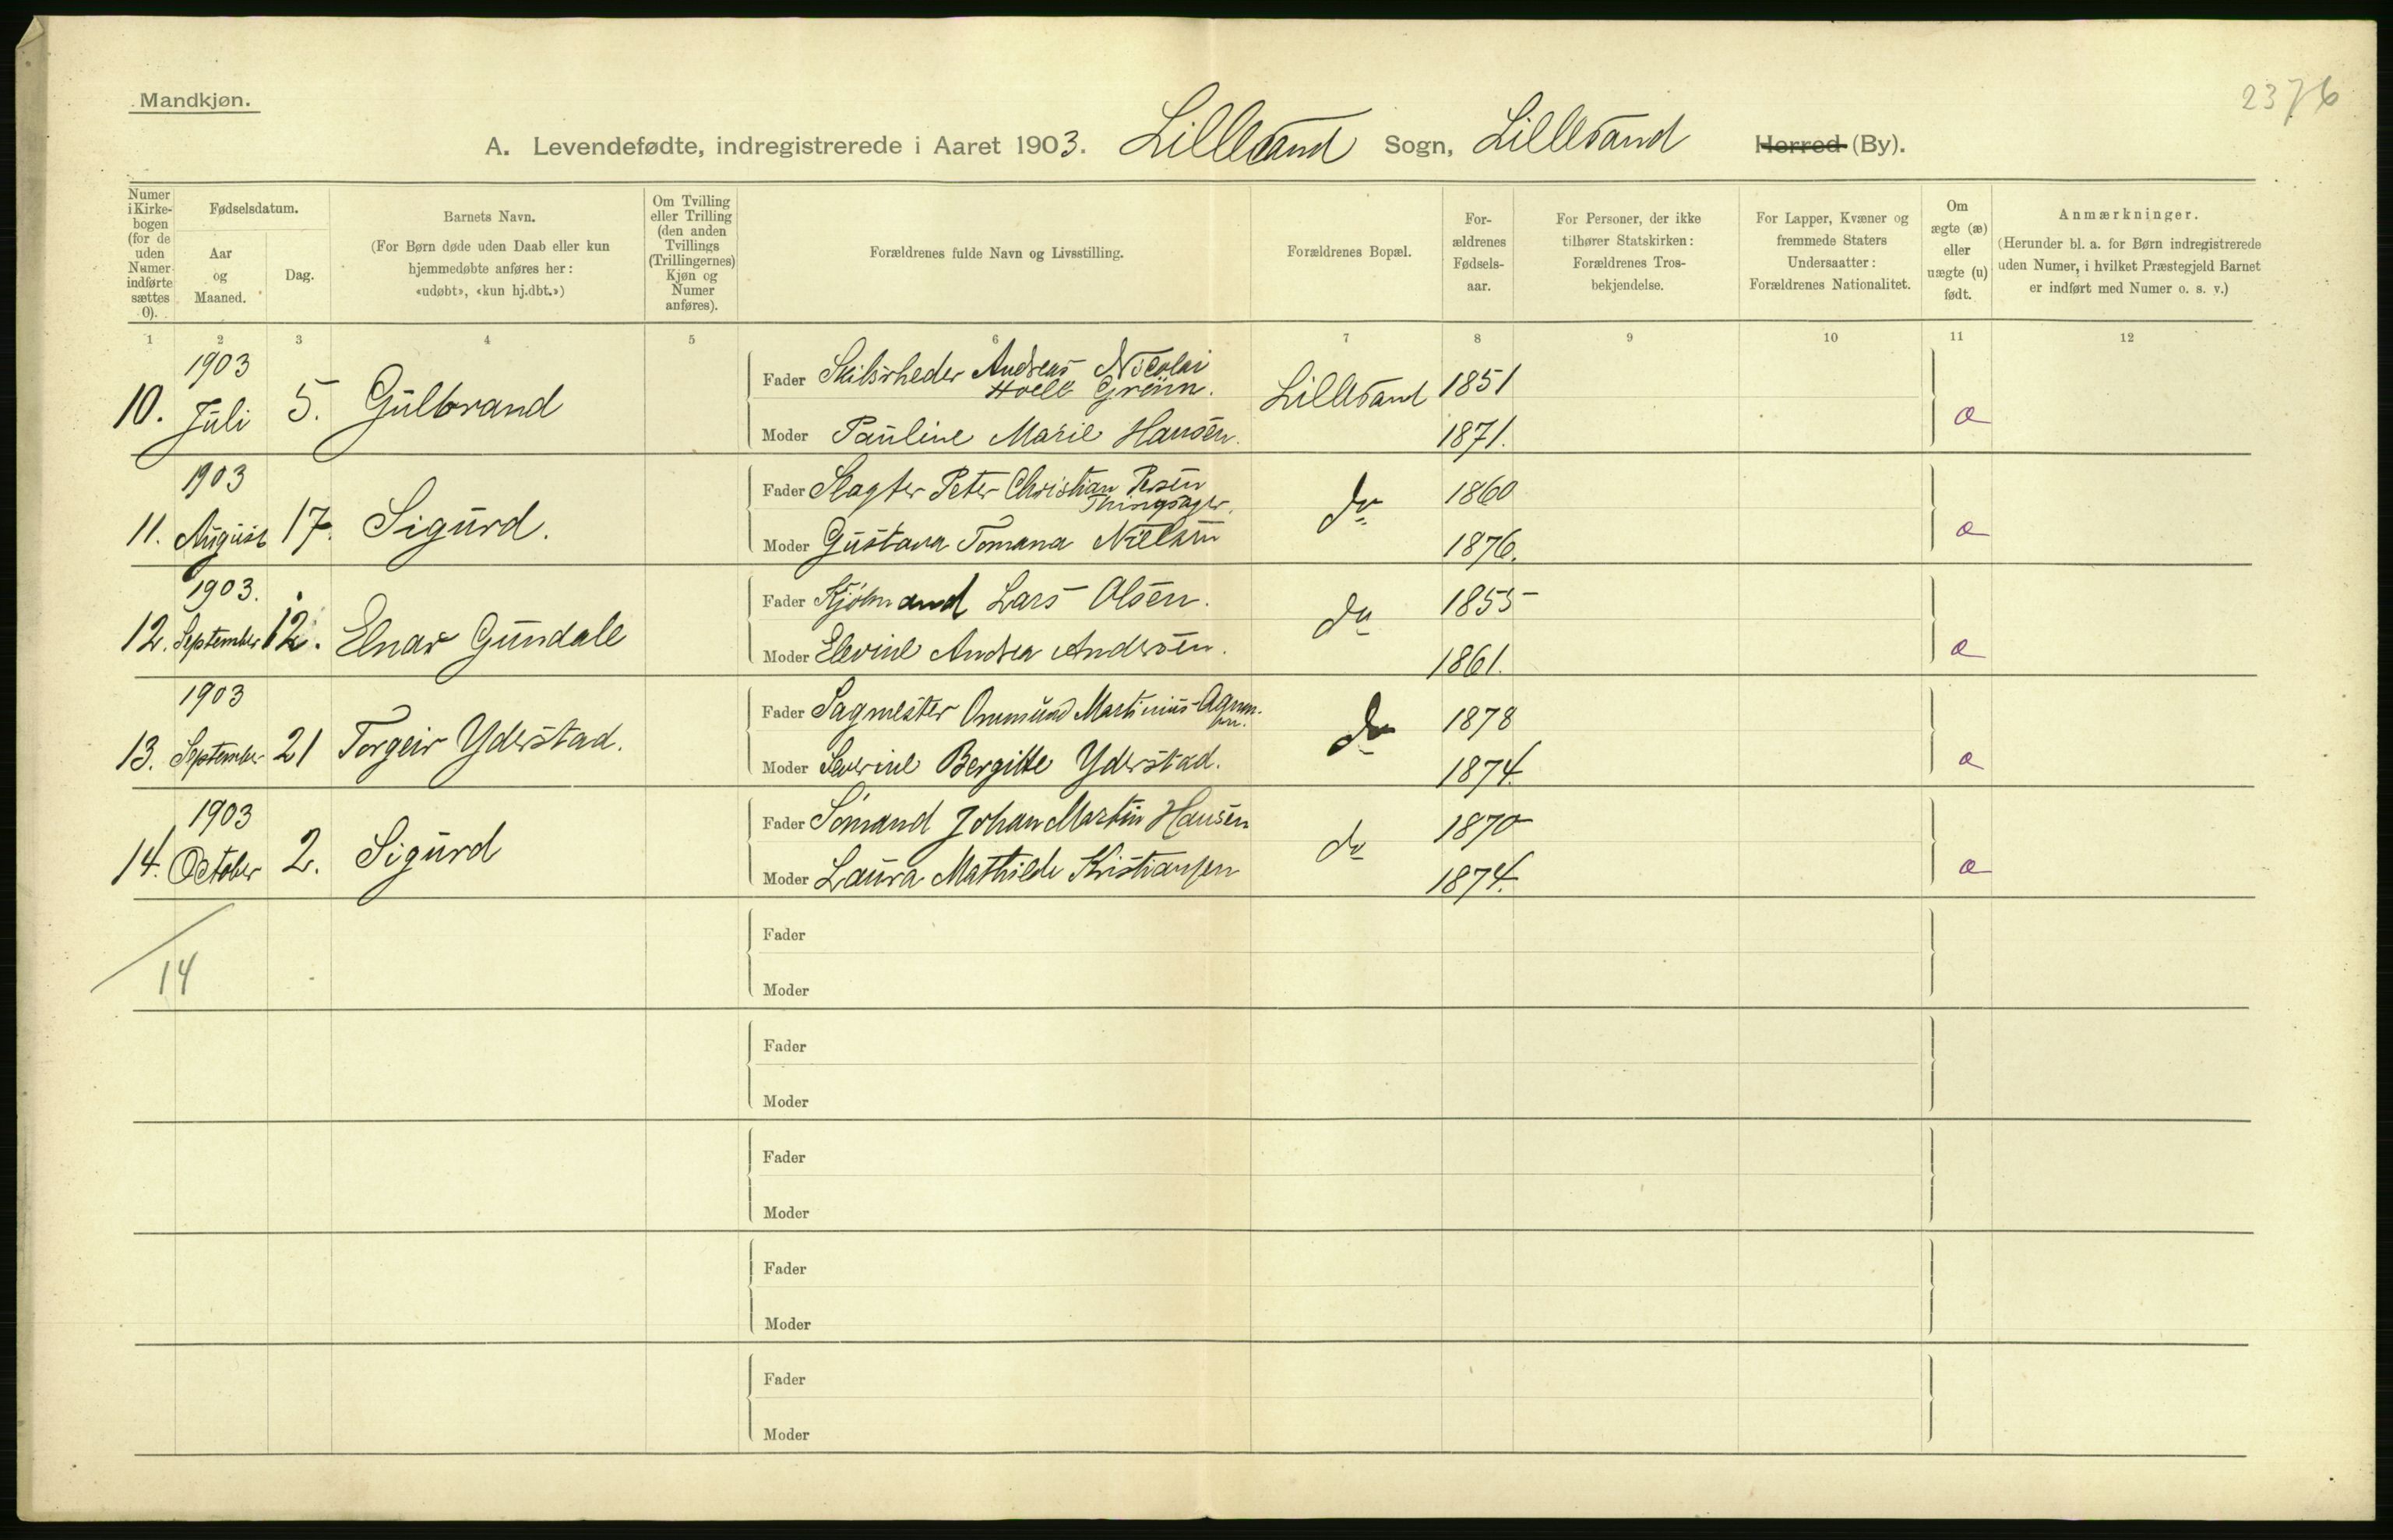 Mandkjøn.
2376
A. Levendefødte, indregistrerede i Aaret 1903. Lillesand Sogn, Lillesand Herred (By).
Numer i Kirke-bogen (for de uden Numer indførte sættes 0).
Fødselsdatum.
Aar og Maaned.
Dag.
Barnets Navn.
(For Børn døde uden Daab eller kun hjemmedøbte anføres her: «udøbt», «kun hj.dbt.»)
Om Tvilling eller Trilling (den anden Tvillings (Trillingernes) Kjøn og Numer anføres).
Forældrenes fulde Navn og Livsstilling.
Forældrenes Bopæl.
For-ældrenes Fødsels-aar.
For Personer, der ikke tilhører Statskirken: Forældrenes Tros-bekjendelse.
For Lapper, Kvæner og fremmede Staters Undersaatter: Forældrenes Nationalitet.
Om ægte (æ) eller uægte (u) født.
Anmærkninger.
(Herunder bl. a. for Børn indregistrerede uden Numer, i hvilket Præstegjeld Barnet er indført med Numer o. s. v.)
1 2 3 4 5 6 7 8 9 10 11 12
1903
10. Juli 5. Gulbrand
Fader Skibsrheder Andreas Nicolai Holck Grønn. Lillesand 1851
Moder Pauline Marie Hansen. 1871. æ
1903
11. August 17. Sigurd.
Fader Slagter Peter Christian Persen Thingsager. do 1860
Moder Gustava Tomana Nielsen 1876. æ
1903.
12. September 12. Einar Gundale
Fader Sjømand Lars Olsen. do 1855
Moder Elevine Andrea Andersen. 1861. æ
1903
13. September 21 Torgeir Yderstad.
Fader Sagmester Ommund Martinius do 1878
Moder Severine Bergitte Yderstad. 1874. æ
1903
14. October 2. Sigurd
Fader Sømand Johan Martin Hansen do 1870
Moder Laura Mathilde Kristiansen 1874. æ
14
Fader
Moder
Fader
Moder
Fader
Moder
Fader
Moder
Fader
Moder